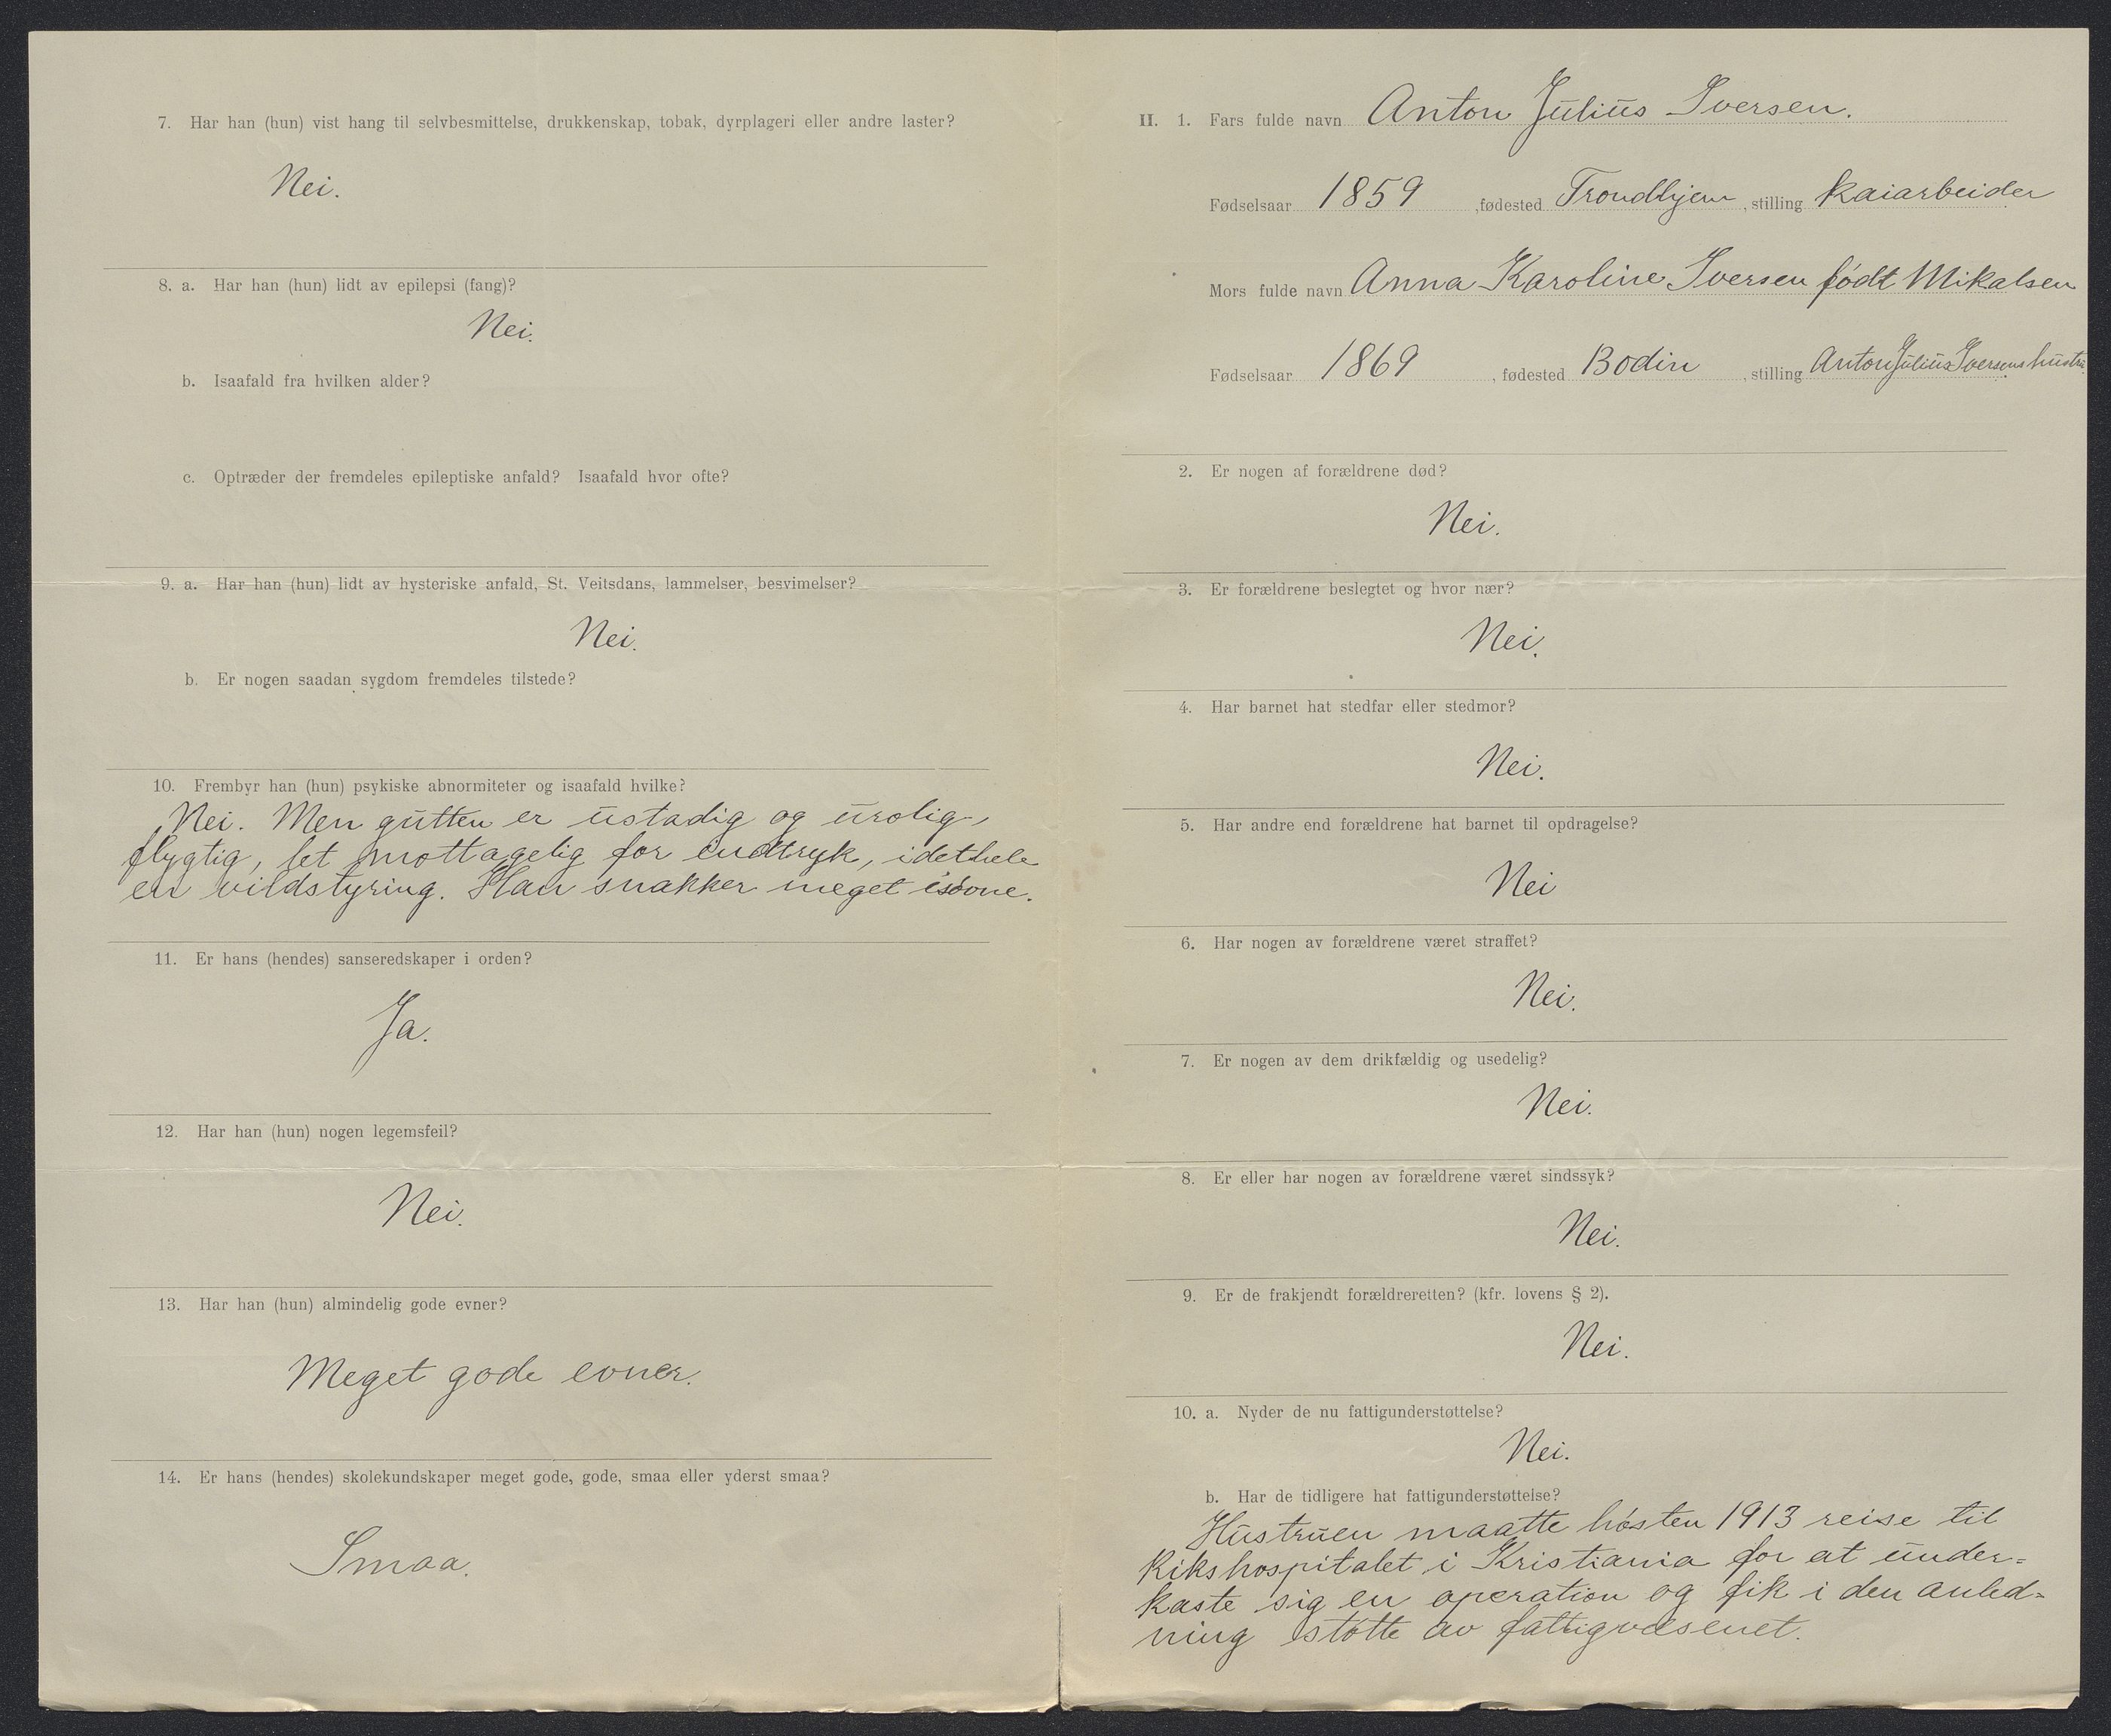 7. Har han (hun) vist hang til selvbesmittelse, drukkenskap, tobak, dyrplageri eller andre laster?
Nei.
8. a. Har han (hun) lidt av epilepsi (fang)?
Nei.
b. Isaafald fra hvilken alder?
c. Optræder der fremdeles epileptiske anfald? Isaafald hvor ofte?
9. a. Har han (hun) lidt av hysteriske anfald, St. Veitsdans, lammelser, besvimelser?
Nei.
b. Er nogen saadan sygdom fremdeles tilstede?
10. Frembyr han (hun) psykiske abnormiteter og isaafald hvilke?
Nei. Men gutten er ustadig og urolig,
flygtig, let mottagelig for indtryk, idethele
en vildstyring. Han snakker meget isövne.
11. Er hans (hendes) sanseredskaper i orden?
Ja.
12. Har han (hun) nogen legemsfeil?
Nei.
13. Har han (hun) almindelig gode evner?
Meget gode evner.
14. Er hans (hendes) skolekundskaper meget gode, gode, smaa eller yderst smaa?
Smaa.
II. 1. Fars fulde navn Anton Julius Iversen.
Fødselsaar 1859, fødested Trondhjem, stilling kaiarbeider
Mors fulde navn Anna Karoline Iversen födt Mikalsen
Fødselsaar 1869, fødested Bodin, stilling Anton Julius Iversens hustru.
2. Er nogen af forældrene død?
Nei.
3. Er forældrene beslegtet og hvor nær?
Nei.
4. Har barnet hat stedfar eller stedmor?
Nei.
5. Har andre end forældrene hat barnet til opdragelse?
Nei
6. Har nogen av forældrene været straffet?
Nei.
7. Er nogen av dem drikfældig og usedelig?
Nei.
8. Er eller har nogen av forældrene været sindssyk?
Nei.
9. Er de frakjendt forældreretten? (kfr. lovens § 2).
Nei.
10. a. Nyder de nu fattigunderstøttelse?
Nei.
b. Har de tidligere hat fattigunderstøttelse?
Hustruen maatte hösten 1913 reise til
Rikshospitalet i Kristiania for at under=
kaste sig en operation og fik i den anled=
ning stötte av fattigvæsenet.